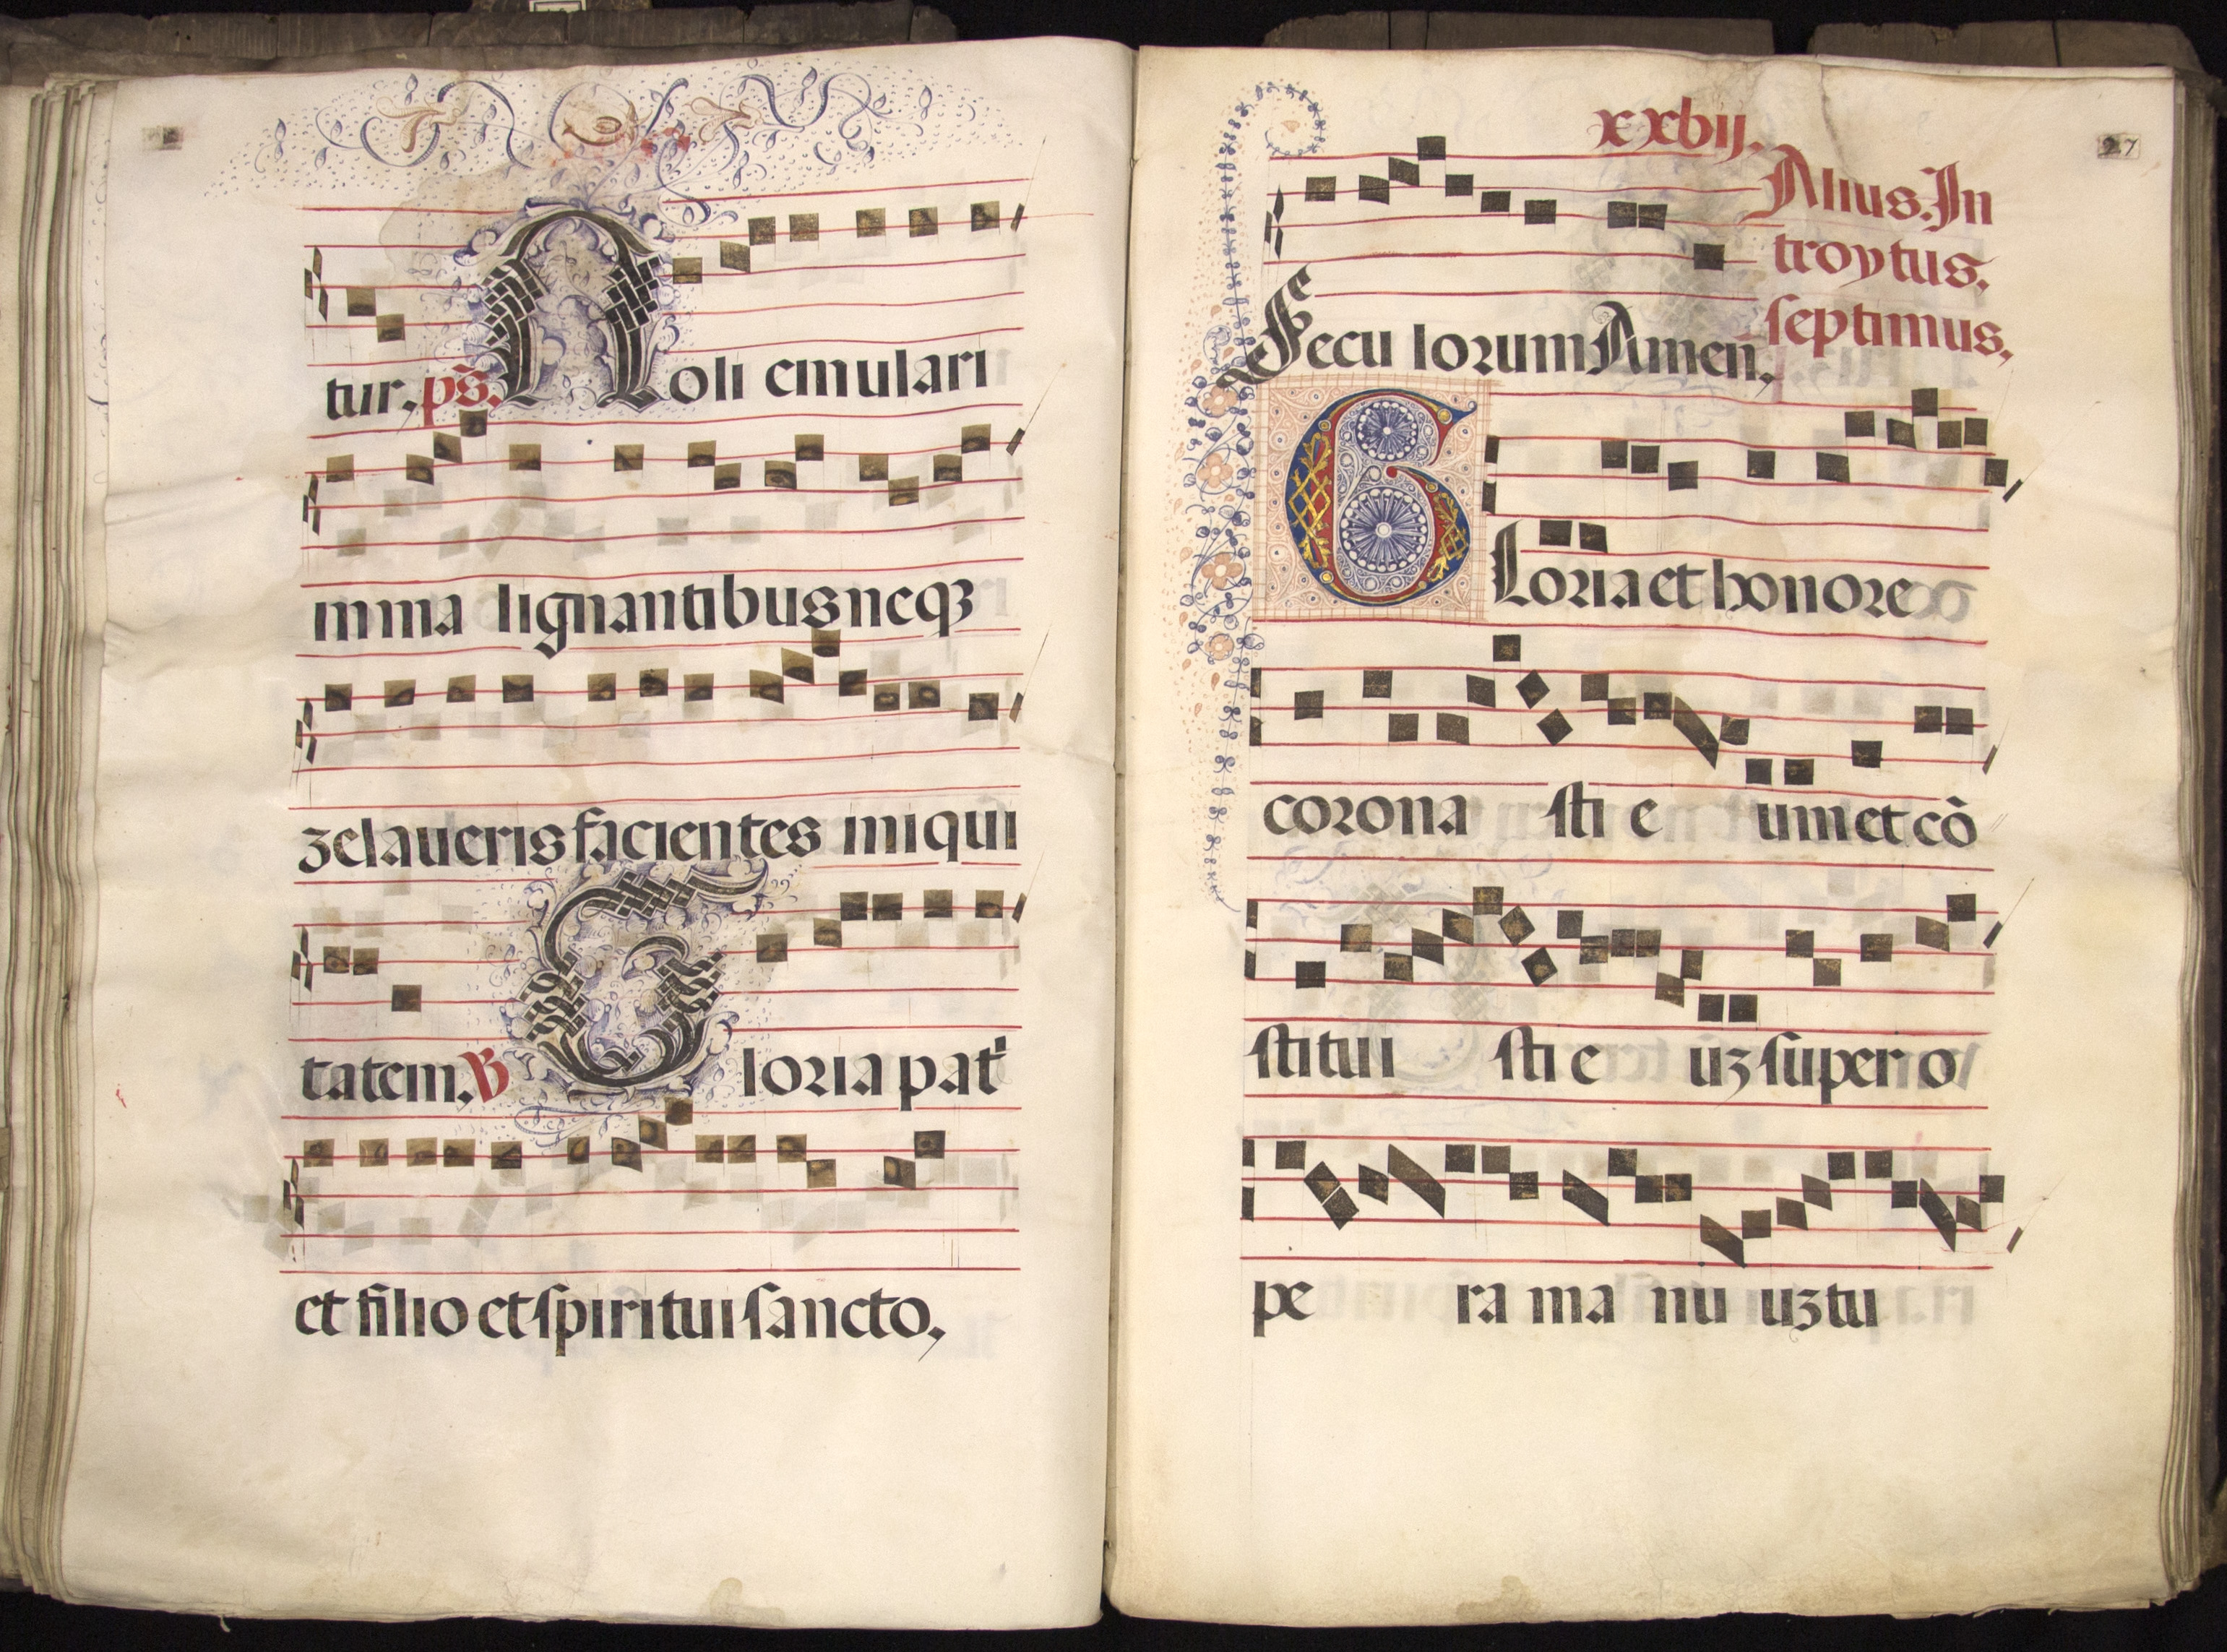 tur, ps. Noli emulari
in ma lignantibus neqꝫ
zelaueris facientes iniqui
tatem. V Gloria patͥ
et filio et spiritui sancto,
xxvij.
27
Alius. In
troytus.
septimus,
Secu lorum Amen,
Gloria et honore
corona sti e um et cō
stitui sti e uꝫ super o
pe ra ma nu uꝫ tu